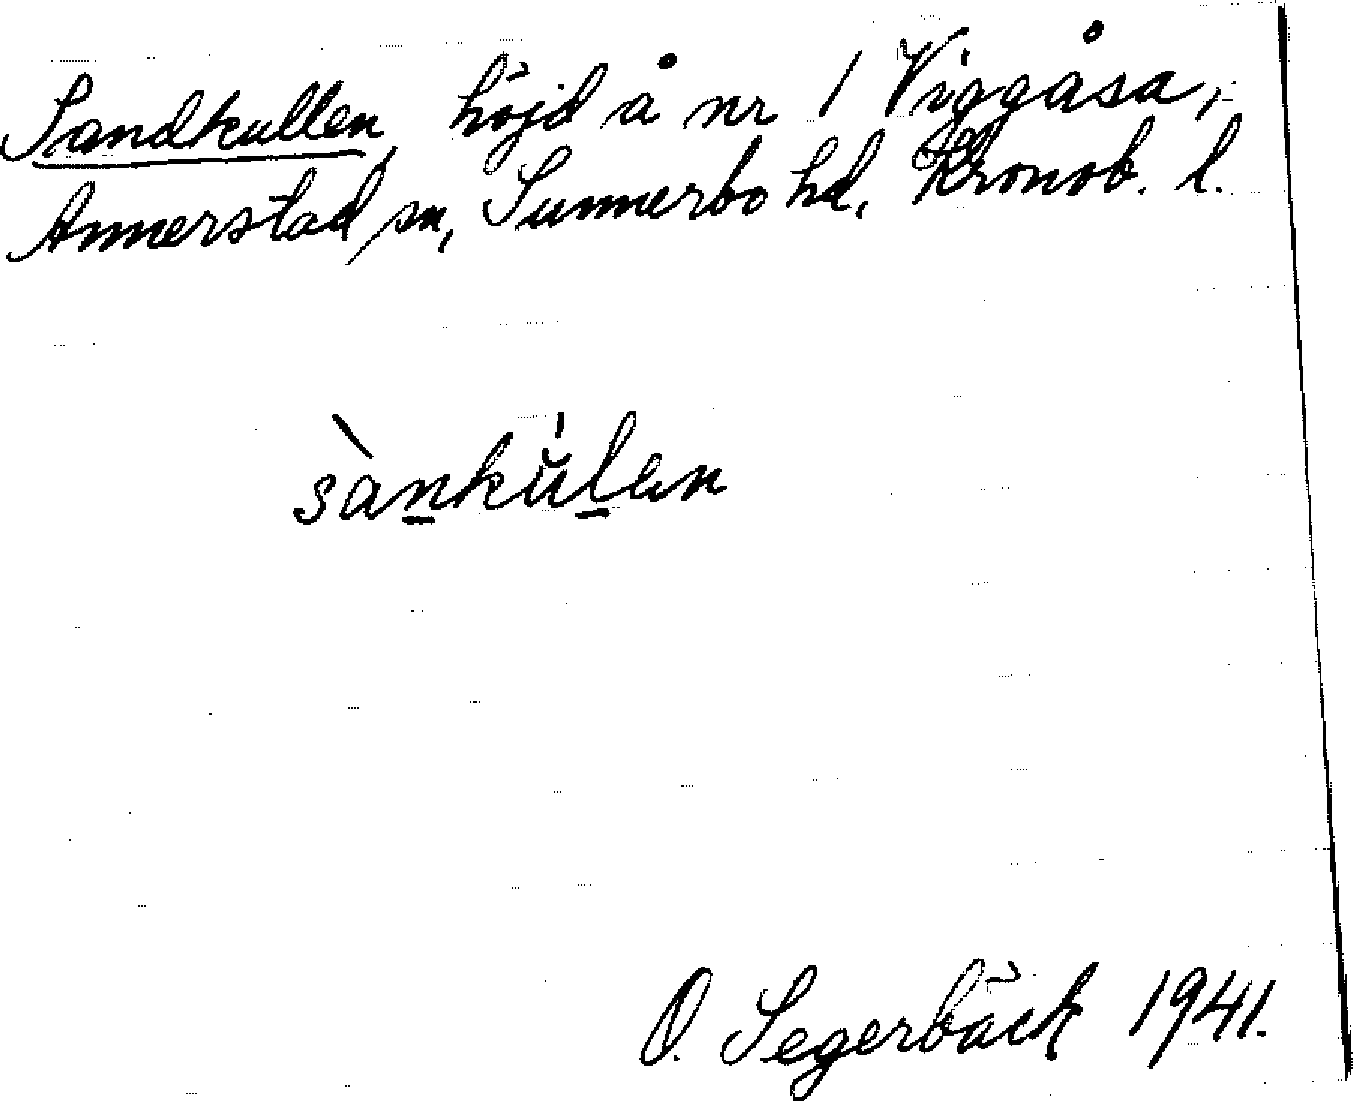 Sandkullen, höjd å nr 1 Viggåsa,
Annerstad sn, Sunnerbo hd, Kronob. l.
sànkŭ̍len
O. Segerbäck 1941.